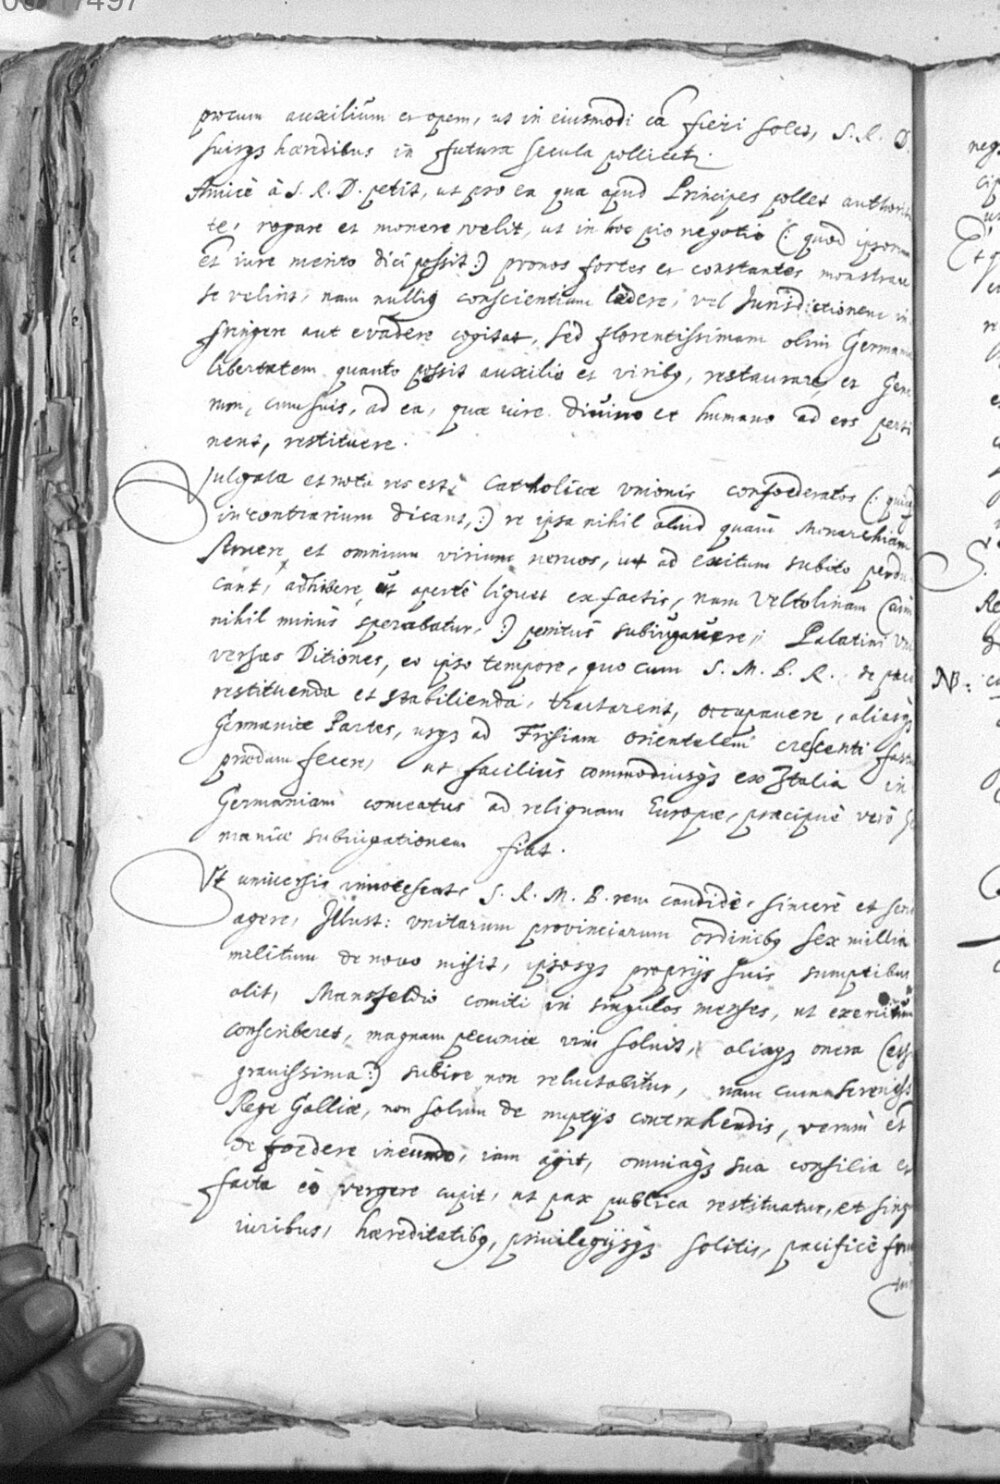 procum auxilium et opem, ut in eiusmodi cã fieri solet, S. R. D.
suisqз hæredibus in futura secula pollicetr.
Amicè à S. R. D. petit, ut pro ea qua apud Principes pollet authorita
te, rogare et monere velit, ut in hoc pio negotio (: quod ipsorum
et iure merito dici possit:) pronos fortes et constantes monstrare
se velint, nam nullius conscientiam lædere, vel Jurisdictionem in
fringere aut evadere cogitat, sed florentissimam olim Germaniæ
libertatem quanto possit auxilio et viribus, restaurare, et Gen
rum, cum suis, ad ea, quæ iure divino et humano ad eos perti
nent, restituere.
Vulgata et nota res est, Catholicæ unionis confoederatos (: quid
in contrarium dicant,:) re ipsa nihil aliud quam Monarchiam
struere, et omnium virium nervos, ut ad exitum subito perdu
cant, adhibere, ut apertè liquet ex factis, nam Veltolinam (cum
nihil minus sperabatur,:) penitus subiugavere, Palatini uni
versas Ditiones, eo ipso tempore, quo cum S. M. B. R. de pace
restituenda et stabilienda, tractarent, occupavere, aliasqз
Germaniæ Partes, usqз ad Frisiam orientalem crescenti
prædam fecere, ut facilius commodiusqз ex Italia in
Germaniam comeatus ad reliquam Europæ, præcipuè verò Ger
maniæ subiugationem fiat.
Ut universis innotescat, S. R. M. B. rem candidè, sincerè et serio
agere, Illust: unitarum provinciarum ordinibus sex millia
militum de novo misit, ipsosqз proprijs suis sumptibus
alit, Mansfeldio comiti in singulos menses, ut exercitum
conscriberet, magnam pecuniæ vim solvit, aliaqз onera (etsi
gravissima:) subire non reluctabitur, nam cum Sereniss
Rege Galliæ, non solum de nuptijs contrahendis, verum et
de foedere ineundo, iam agit, omniaqз sua consilia et
facta eò vergere cupit, ut pax publica restituatur, et sing
iuribus, hæreditatibus, privilegijsqз solitis, pacificè frui
NB: